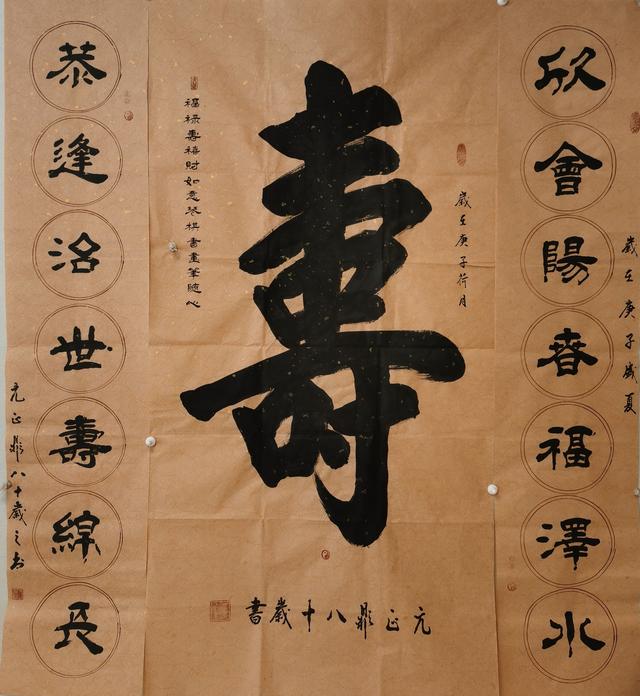 歲在庚子歲夏
欣會陽春福澤水
歲在庚子荷月
壽
福祿壽禧財如意琴棋書畫筆隨心
元正鼎八十歲書
恭逢治世壽綿長
元正鼎八十歲之書